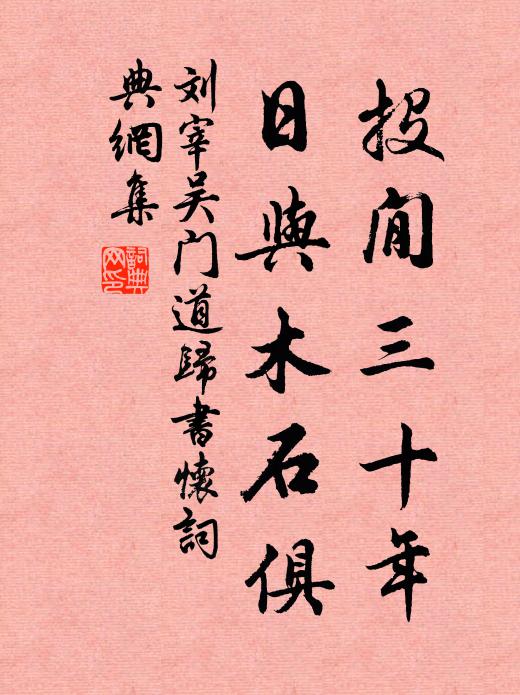 投闲三十年
日與木石俱
刘宰吴门道歸書懷詞
典網集
詞典
网印